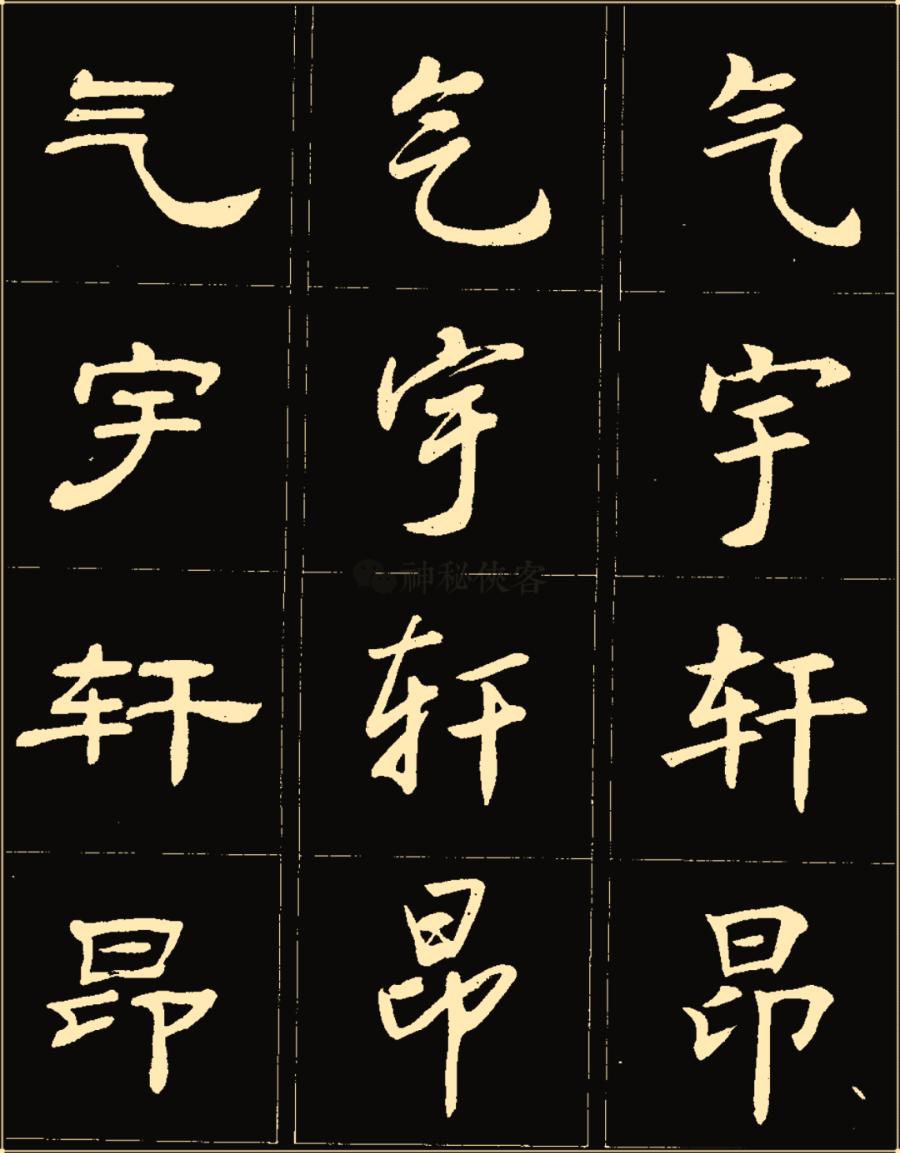 气 气 气
宇 宇 宇
轩 轩 轩
昂 昂 昂
神秘侠客